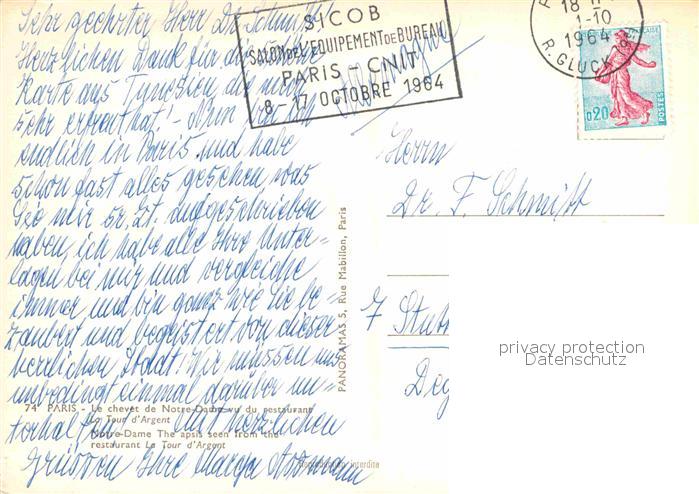 Sehr geehrter Herr Dr. Schmitt!
Herzlichen Dank für die
Karte aus Tunesien die mich
sehr erfreut hat! - Nun bin ich
endlich in Paris und habe
schon fast alles gesehen was
Sie mir sr. Zt. aufgeschrieben
haben, ich habe alle Ihre Unter=
lagen bei mir und vergleiche
immer und bin ganz wie Sie be=
zaubert und begeistert von dieser
herrlichen Stadt! Wir müssen uns
unbedingt einmal darüber un=
terhalten! Mit herzlichen
Grüssen Ihre Marga
74 PARIS - Le chevet de Notre-Dame vu du restaurant
La Tour d'Argent
Notre-Dame The apsis seen from the
restaurant La Tour d'Argent
Reproduction interdite
PANORAMAS 5, Rue Mabillon, Paris
SICOB
SALON DE L'EQUIPEMENT DE BUREAU
PARIS - CNIT
8 - 17 OCTOBRE 1964
18 H
1-10
1964
R. GLUCK
FRANÇAISE
0,20
POSTES
Herrn
Dr. F. Schmitt
7 Stutt
Deg
privacy protection
Datenschutz